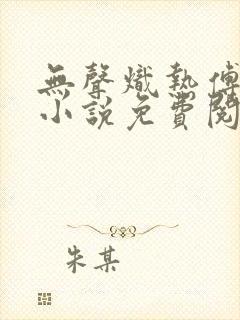 無聲熾熱傅
小說免費閱
朱某